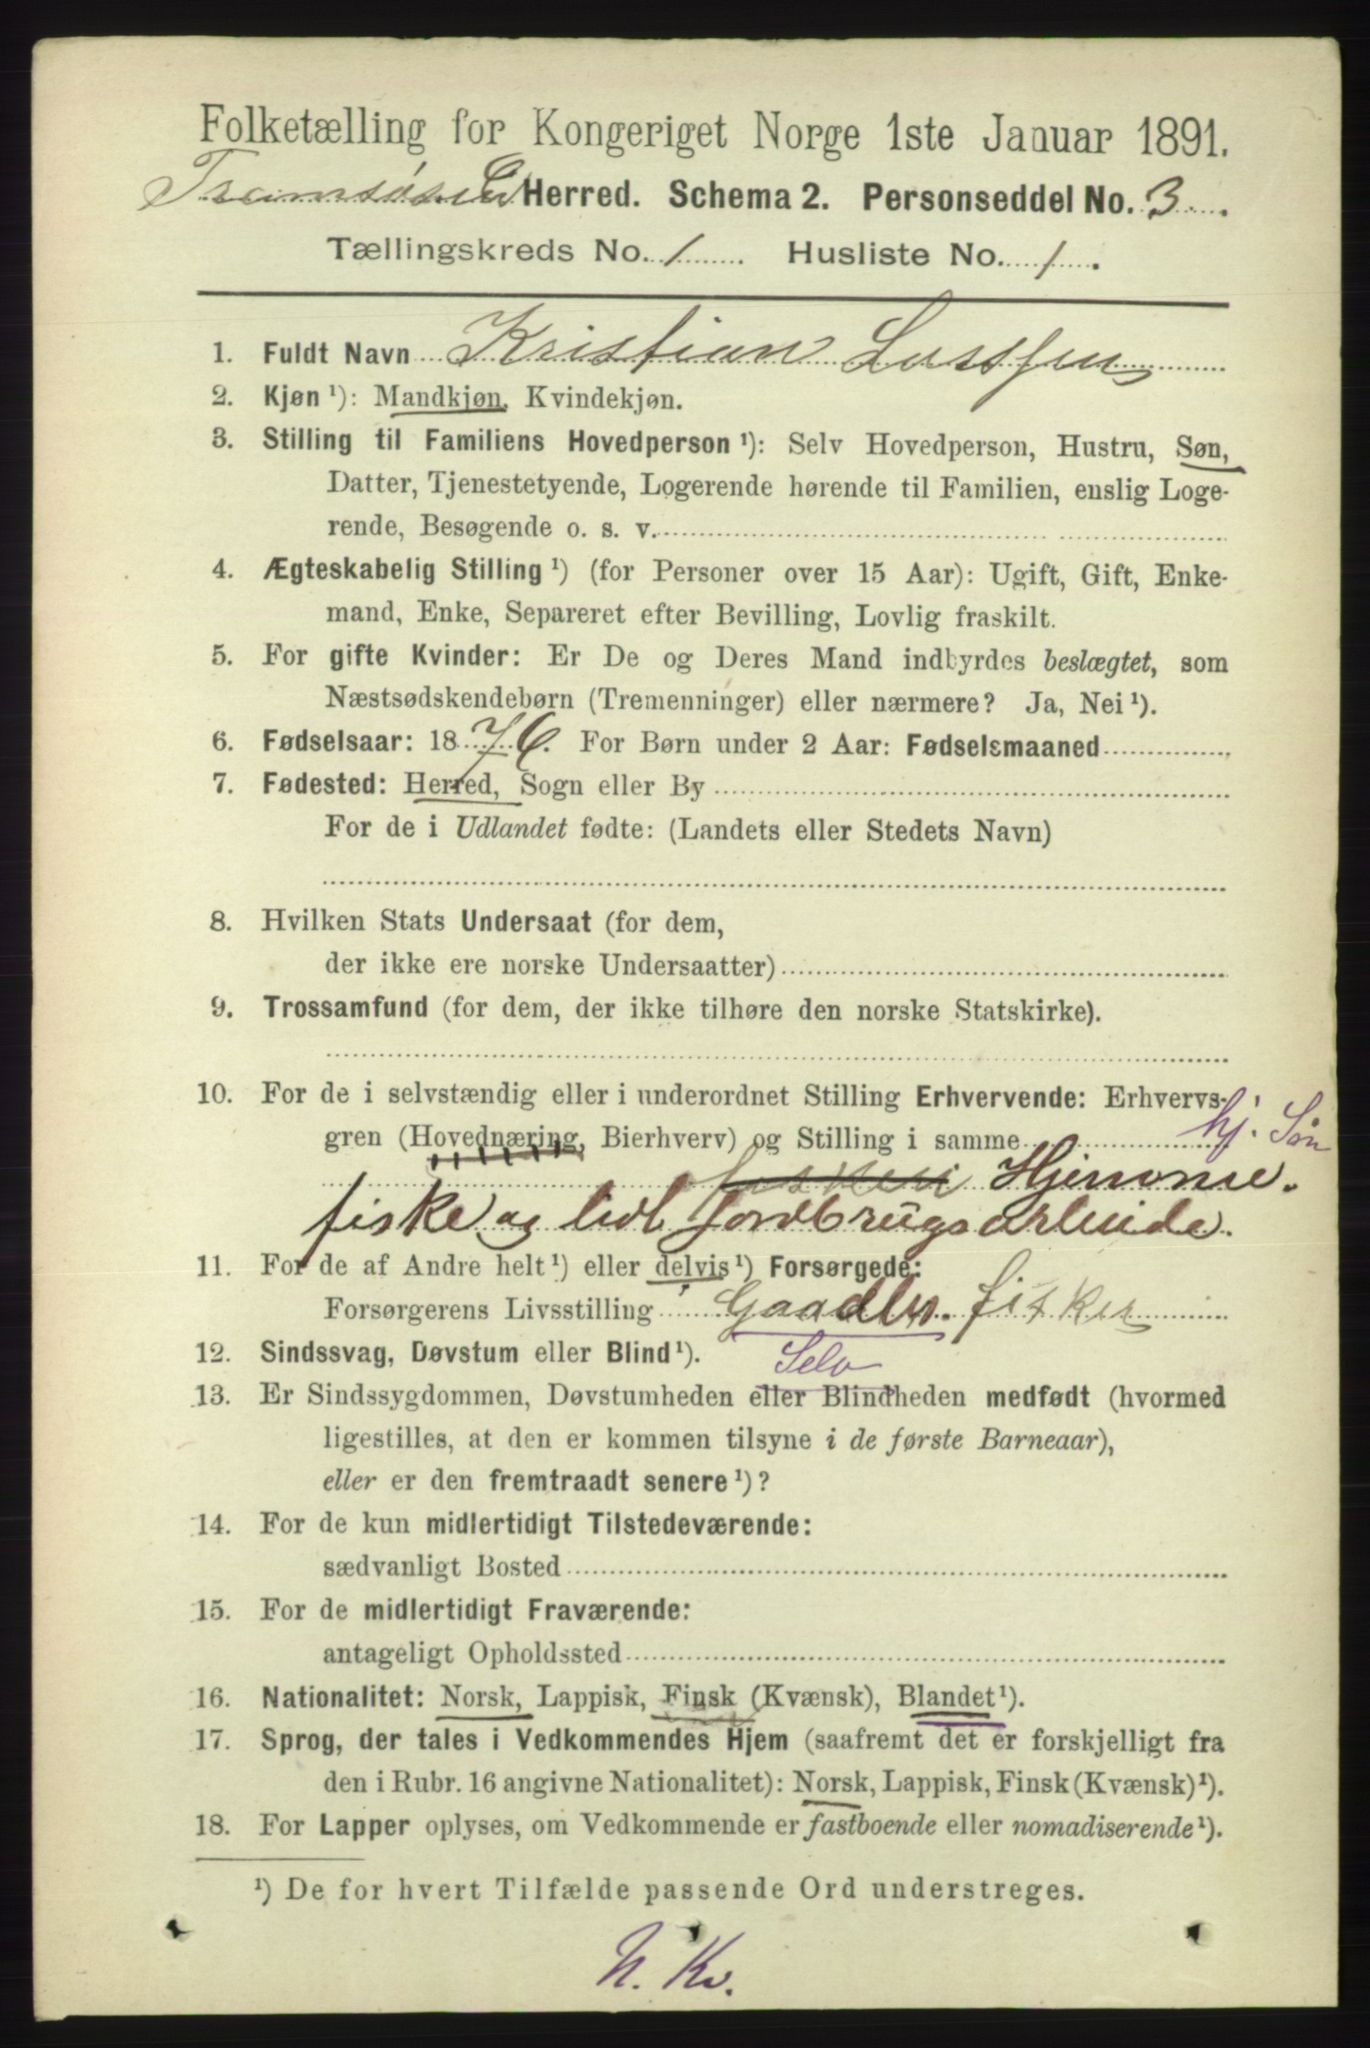 Folketælling for Kongeriget Norge 1ste Januar 1891.
Tromsøsund Herred. Schema 2. Personseddel No. 3
Tællingskreds No. 1 Husliste No. 1.
1. Fuldt Navn Kristian Lassen
2. Kjøn ¹): Mandkjøn, Kvindekjøn.
3. Stilling til Familiens Hovedperson ¹): Selv Hovedperson, Hustru, Søn,
Datter, Tjenestetyende, Logerende hørende til Familien, enslig Loge-
rende, Besøgende o. s. v.
4. Ægteskabelig Stilling ¹) (for Personer over 15 Aar): Ugift, Gift, Enke-
mand, Enke, Separeret efter Bevilling, Lovlig fraskilt.
5. For gifte Kvinder: Er De og Deres Mand indbyrdes beslægtet, som
Næstsødskendebørn (Tremenninger) eller nærmere? Ja, Nei ¹).
6. Fødselsaar: 1876. For Børn under 2 Aar: Fødselsmaaned
7. Fødested: Herred, Sogn eller By
For de i Udlandet fødte: (Landets eller Stedets Navn)
8. Hvilken Stats Undersaat (for dem,
der ikke ere norske Undersaatter)
9. Trossamfund (for dem, der ikke tilhøre den norske Statskirke).
10. For de i selvstændig eller i underordnet Stilling Erhvervende: Erhvervs-
gren (Hovednæring, Bierhverv) og Stilling i samme hj. Søn
Hjemme.
fiske og lidt jordbrugsarbeide.
11. For de af Andre helt ¹) eller delvis ¹) Forsørgede:
Forsørgerens Livsstilling Gaardbr. fisker
12. Sindssvag, Døvstum eller Blind ¹). Selv
13. Er Sindssygdommen, Døvstumheden eller Blindheden medfødt (hvormed
ligestilles, at den er kommen tilsyne i de første Barneaar),
eller er den fremtraadt senere ¹)?
14. For de kun midlertidigt Tilstedeværende:
sædvanligt Bosted
15. For de midlertidigt Fraværende:
antageligt Opholdssted
16. Nationalitet: Norsk, Lappisk, Finsk (Kvænsk), Blandet ¹).
17. Sprog, der tales i Vedkommendes Hjem (saafremt det er forskjelligt fra
den i Rubr. 16 angivne Nationalitet): Norsk, Lappisk, Finsk (Kvænsk) ¹).
18. For Lapper oplyses, om Vedkommende er fastboende eller nomadiserende ¹).
¹) De for hvert Tilfælde passende Ord understreges.
N. Kv.